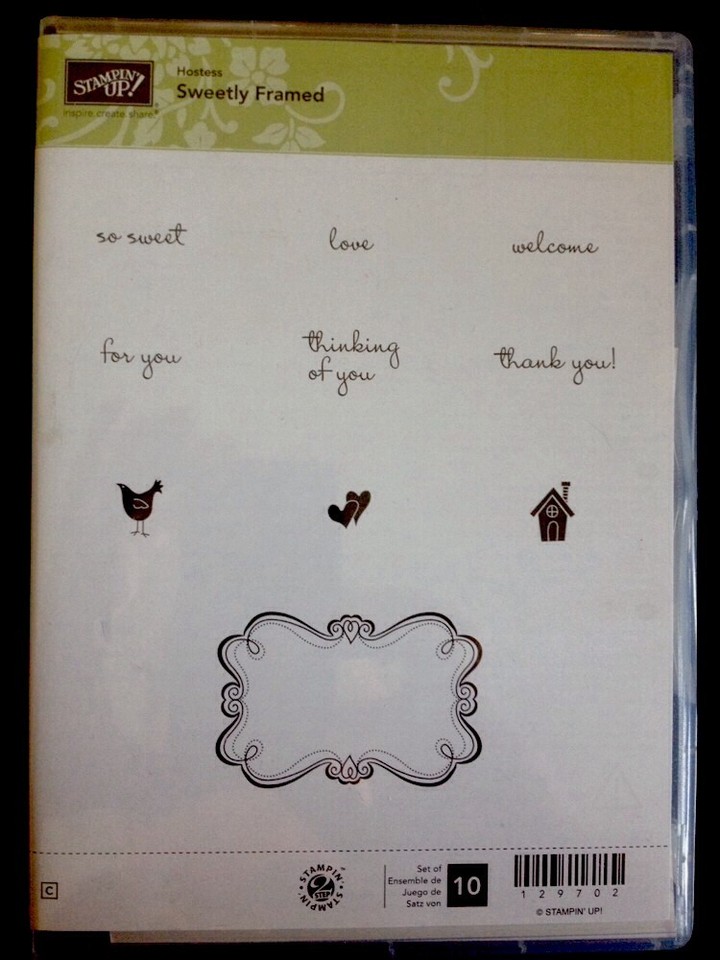 STAMPIN' UP!
inspire.create.share.®
Hostess
Sweetly Framed
so sweet
love
welcome
for you
thinking
of you
thank you!
C
STAMPIN'
2
STEP
STAMPIN'
Set of
Ensemble de
Juego de
Satz von
10
129702
© STAMPIN' UP!